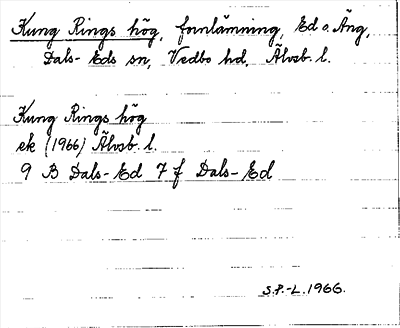 Kung Rings hög, fornlämning, Ed o. Äng,
Dals-Eds sn, Vedbo hd, Älvsb. l.
Kung Rings hög
ek (1966) Älvsb. l.
9 B Dals-Ed 7 f Dals-Ed
S.P.-L. 1966.